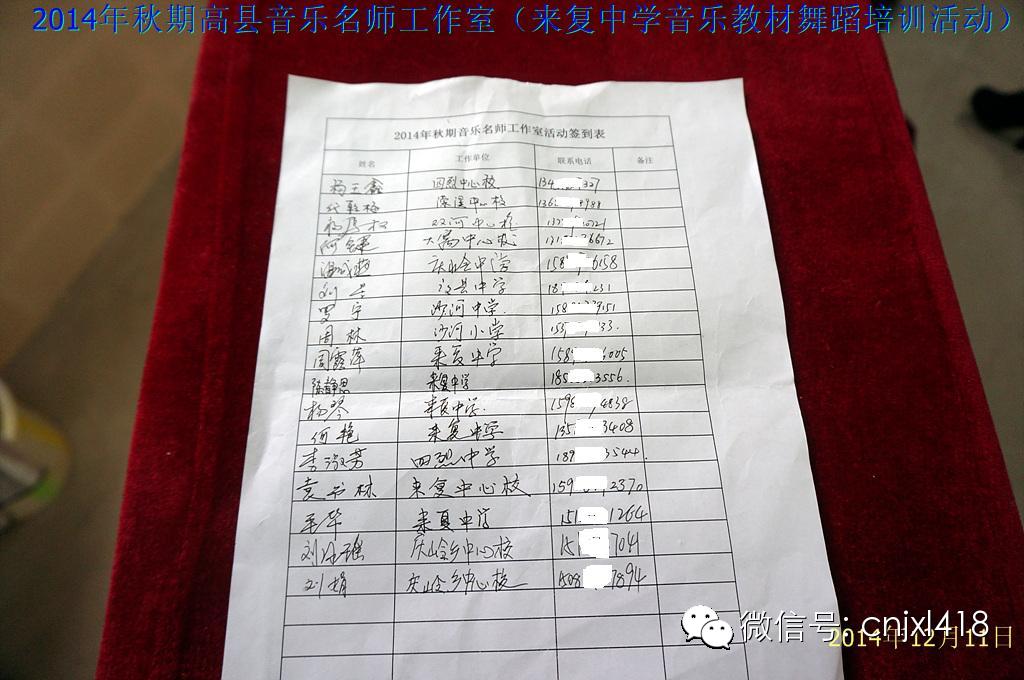 2014年秋期高县音乐名师工作室（来复中学音乐教材舞蹈培训活动）
2014年秋期音乐名师工作室活动签到表
姓名 工作单位 联系电话 备注
杨玉鑫 四烈中心校 134 327
中心校 136 8988
双河中心校
大窝中心校 6672
庆岭中学 158 6158
刘 中学 231
罗宁 沙河中学 158 39151
周林 沙河小学 33
周露萍 来复中学 158 6005
陈静思 来复中学 185 3556
杨琴 来复中学 159 4838
何艳 来复中学 135 3408
李淑芳 四烈中学 189 3544
袁书林 来复中心校 159 2370
来复中学 151 1264
刘 瑶 庆岭乡中心校 151 7041
刘娟 庆岭乡中心校 1508 7894
微信号: cnjxl418
2014年12月11日